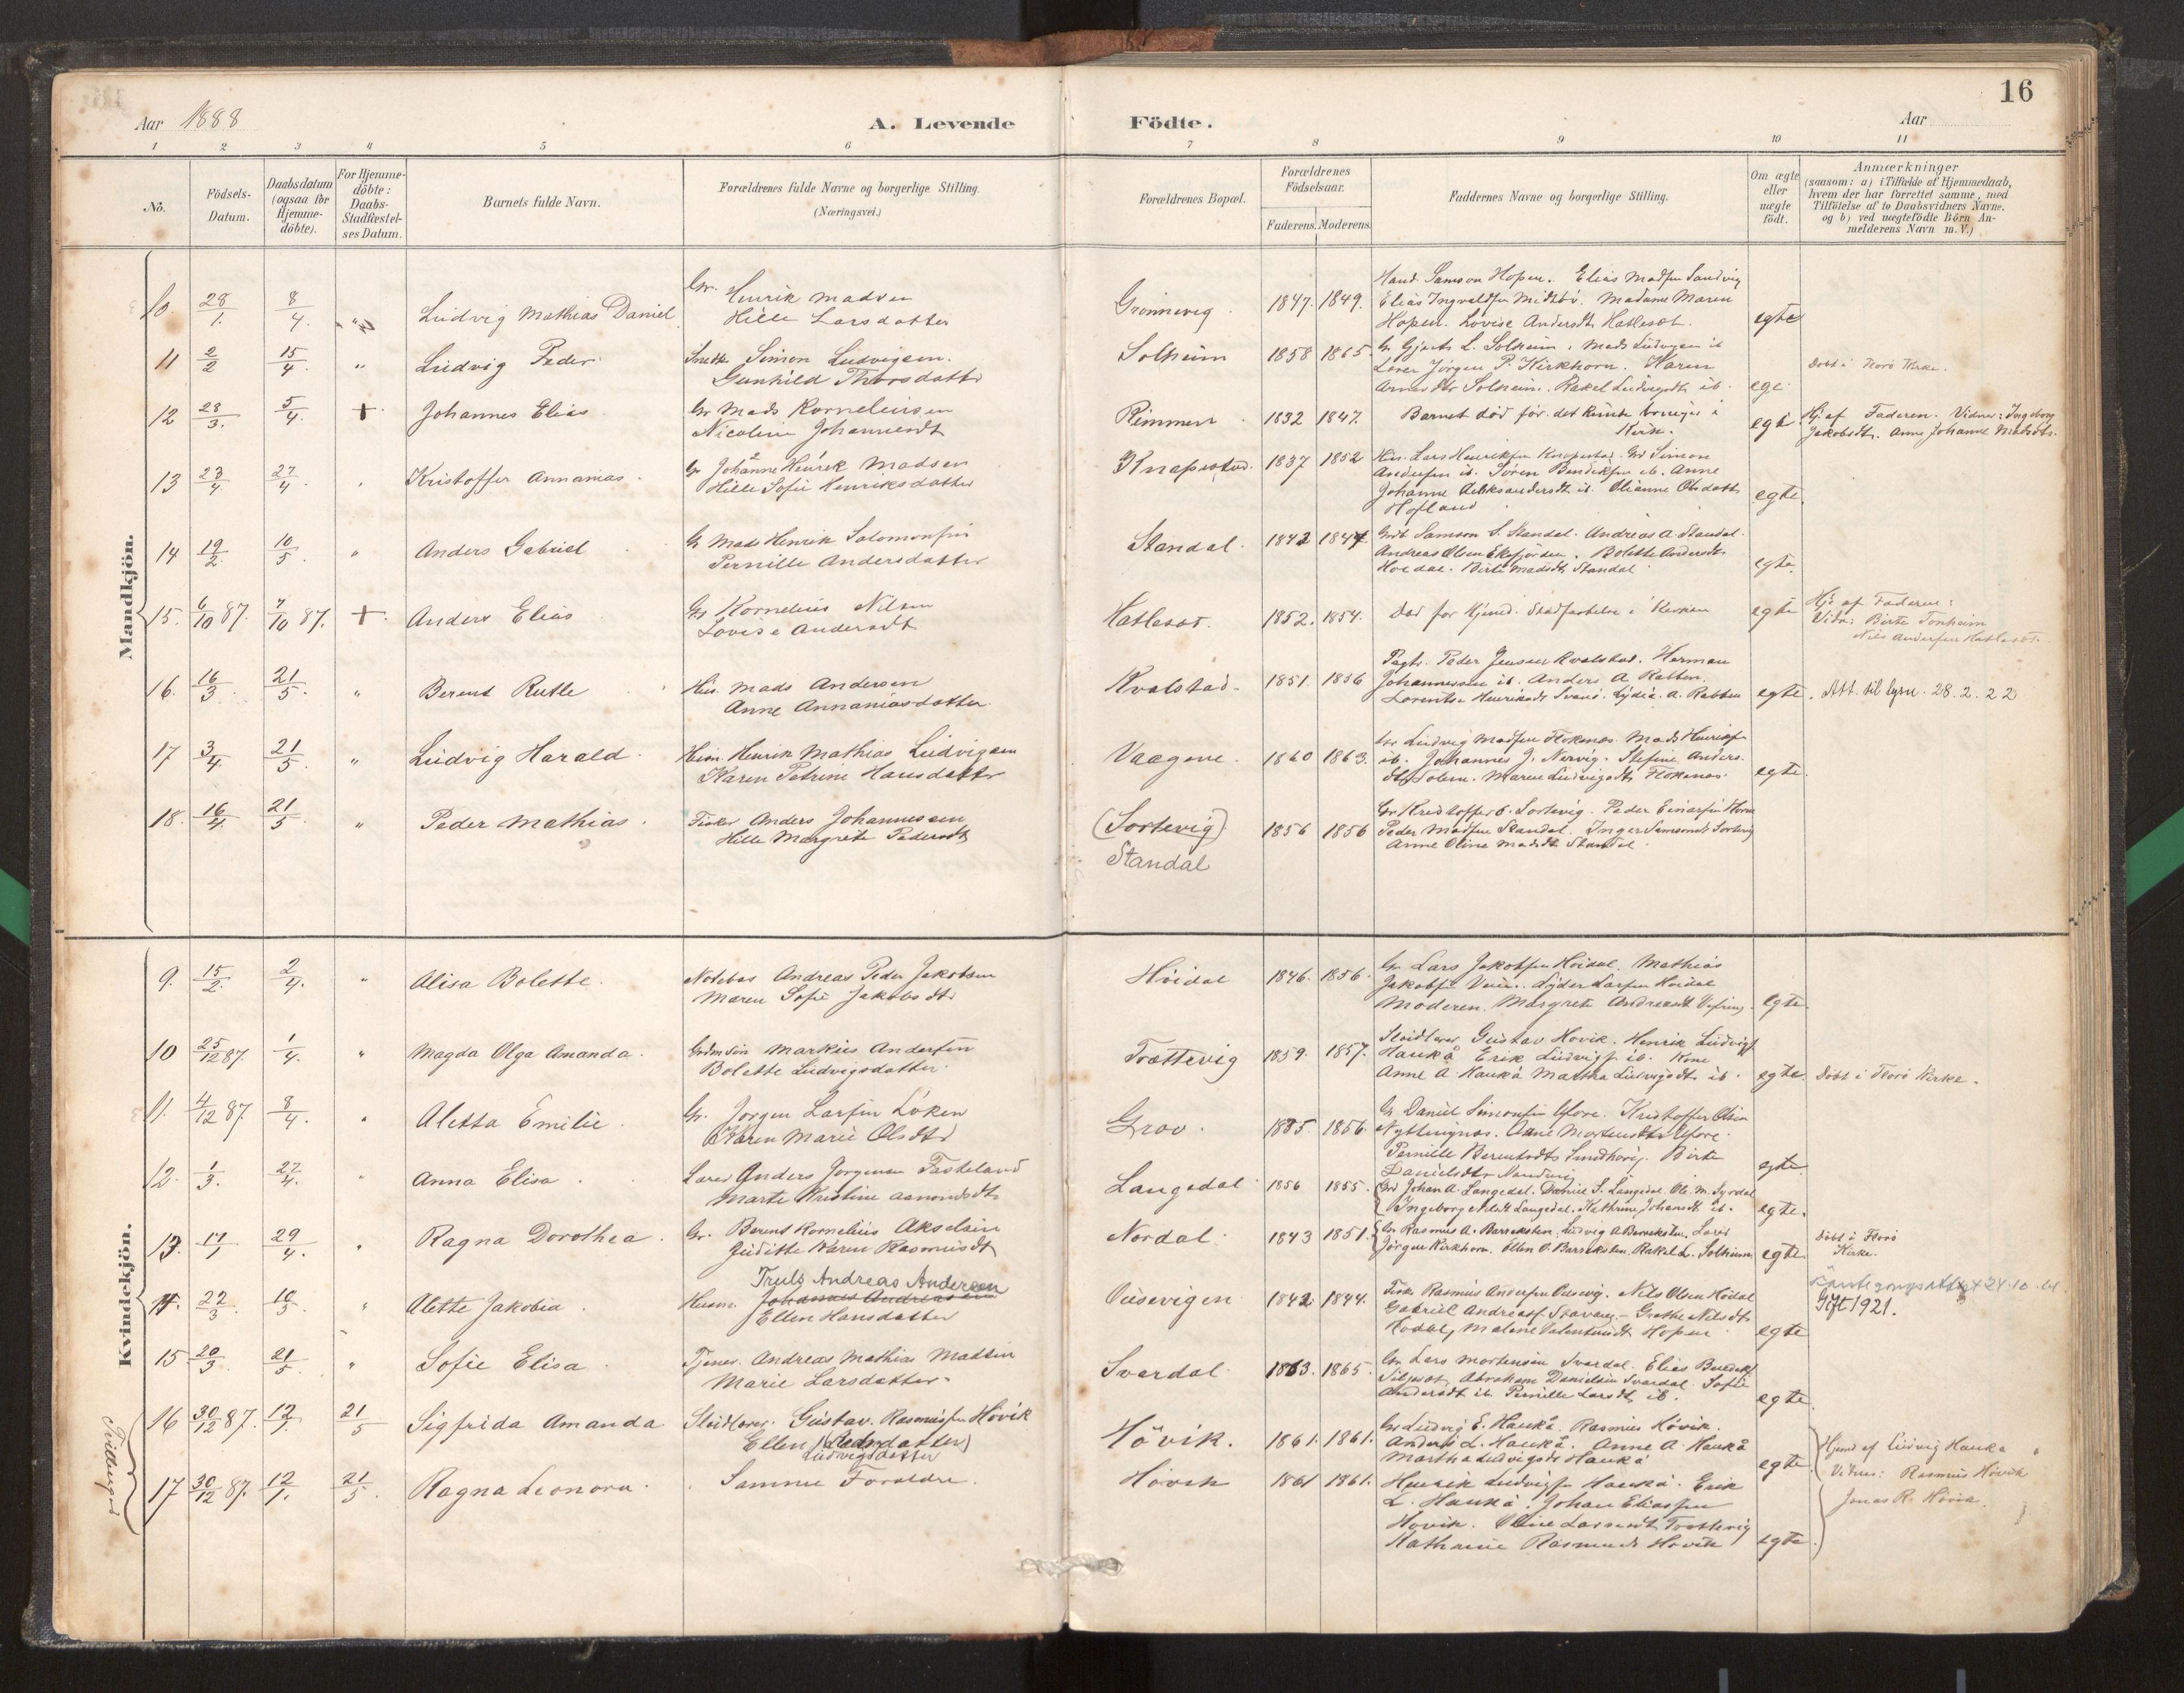 16
Aar 1888
A. Levende Födte.
Aar
1 2 3 4 5 6 7 8 9 10 11
No.
Födsels-Datum.
Daabsdatum (ogsaa for Hjemme-döbte).
For Hjemme-döbte: Daabs-Stadfæstel-ses Datum.
Barnets fulde Navn.
Forældrenes fulde Navne og borgerlige Stilling.
(Næringsvei.)
Forældrenes Bopæl.
Forældrenes Födselsaar.
Faderens. Moderens.
Faddernes Navne og borgerlige Stilling.
Om ægte eller uægte födt.
Anmærkninger
(saasom: a) i Tilfælde af Hjemmedaab,
hvem der har forrettet samme, med
Tilföielse af to Daabsvidners Navne,
og b) ved uægtefödte Börn An-
melderens Navn m. V.)
Mandkjön.
10. 28/1. 8/4. " Ludvig Mathias Daniel
Gr. Henrik Madsen
Hille Larsdatter
Grönnevig 1847. 1849.
Hand. Samson Hopen. Elias Madsen Sandvig
Elias Ingvaldsen Midtbö. Madame Maren
Hopen. Lovise Andersdt. Hatleset.
egte
11 2/2 15/4. " Ludvig Peder
Snedk. Simon Ludvigsen.
Gunhild Thorsdatter
Solheim 1858 1865.
Gr. Gjert L. Solheim. Mads Ludvigsen ib
Lærer Jörgen P. Kirkhorn. Karen
Arnesdtr Solheim. Rakel Ludvigsdtr. ib.
egte
Döbt i Florö Kirke.
12 28/3. 5/4. + Johannes Elias
Gr Mads Korneliusen
Nicoline Johannesdt
Rimmen 1832 1847.
Barnet död för det kunde bringes i
Kirk.
egte
Hj. af Faderen. Vidner: Ingeborg
Jakobsdtr. Anne Johanne Madsdtr.
13 23/4. 27/4. Kristoffer Annanias
Gr Johanne Henrik Madsen
Hille Sofie Henriksdatter
Knapestad. 1837 1852
Hus. Lars Henriksen Knapestad. Gr Simon
Andersen ib. Sören Bendiksen ib. Anne
Johanne Aleksandersdt ib. Olianne Olsdatter
Hofland
egte.
14 19/2. 10/5 " Anders Gabriel
G Mads Henrik Salomonsen
Pernille Andersdatter
Standal. 1842 1847
Grdb Samson S. Standal. Andreas A. Standal.
Andreas Olsen Eikefjorden. Bolette Andersdtr
Hoedal. Birte Madsdt. Standal
egte.
15. 6/10 87. 7/10 87. + Anders Elias
Gr Kornelius Nilsen
Lovise Andersdt
Hatleset. 1852. 1854.
Död för Hjemd. Stadfæstelse i Kirken
egte
Hj. af Faderen:
Vidn: Birte Tonheim
Nils Andersen Hatleset.
16. 16/3. 21/5. " Berent Rutle
Hus. Mads Andersen
Anne Annaniasdatter
Kvalstad. 1851. 1856
Pagtr. Peder Jensen Kvalstad. Herman
Johannessen ib. Anders A. Rabben.
Lorentse Henriksdt Svanö. Lydia A. Rabben
egte.
Att. til lysn. 28.2.22
17 3/4. 21/5. " Ludvig Harald.
Husm. Henrik Mathias Ludvigsen
Karen Petrine Hansdatter
Vaagene. 1860 1863.
Gr Ludvig Madsen Flokenes. Mads Henriksen
ib. Johannes J. Nervig. Stefine Anders-
dtr Solem. Maren Ludvigsdt. Flokenes.
egte.
18. 16/4 21/5. " Peder Mathias.
Fisker Anders Johannesen
Hille Margrete Pedersdt
(Sortevig) 1856 1856
Standal
Gr Kristoffer C. Sortevig. Peder Einarsen Horne
Peder Madsen Standal. Inger Samsonsdt Sortevig
Anne Oline Madsdt. Standal.
Kvindekjön.
9. 15/2. 2/4. " Alisa Bolette.
Notebas Andreas Peder Jakobsen
Maren Sofie Jakobsdtr
Höidal 1846. 1856.
Gr Lars Jakobsen Höidal. Mathias
Jakobsen Veien. Lyder Larsen Höidal
Moderen. Margrete Andreasdt Vefring.
egte.
10 25/12 87. 1/4. " Magda Olga Amanda.
Grdm Sön Markus Andersen
Bolette Ludvigsdatter.
Trættevig 1859. 1857.
Skolelærer Gustav Hovik. Henrik Ludvigs.
Haukå Erik Ludvigs. ib. Kone
Anne A. Haukå Martha Ludvigsdtr ib.
egte.
Döbt i Florö Kirke.
11. 4/12 87 8/4. " Aletta Emilie.
Gr. Jörgen Larsen Löken
Karen Marie Olsdtr
Grov. 1835. 1856.
Gr Daniel Simonsen Ufore. Kristoffer Olsen
Nyttingnes. Anne Mortensdtr Ufore.
Pernille Berentsdtr Sundhorig. Birte
Danielsdtr
egte
12. 1/3. 27/4. " Anna Elisa.
Lærer Anders Jörgensen Fasteland
Marte Kristine Aamondsdtr
Langedal 1856 1855.
Gr Johan A. Langedal. Daniel S. Langedal. Ole M. Syrdal
Ingeborg Nilsdt Langedal. Kathrine Johansdt ib.
egte.
13. 17/1 29/4. " Ragna Dorothea.
Gr. Berent Kornelius Akselsen
Juditte Karen Rasmusdt
Nordal. 1843 1851.
Gr Rasmus A. Barreksten. Ludvig A Barreksten. Lærer
Jörgen Kirkhorn. Ellen O. Barreksten. Rakel L. Solheim
egte
Döbt i Florö
Kirke.
14. 22/3. 10/5 " Alette Jakobia.
Truls Andreas Andersen
Husm. Johannes Andreassen
Ellen Hansdatter
Ousevigen 1842 1844.
Fisk. Rasmus Andersen Ousevig. Nils Olsen Hödal
Gabriel Andreass. Stavang. Grethe Nilsdt
Hödal, Malene Valentinsdt. Hopen
egte
24.10.
Gift 1921.
15 20/3. 21/5. " Sofie Elisa.
Tjener. Andreas Mathias Madsen
Marie Larsdatter.
Svardal. 1863. 1865.
Gr Lars Mortensen Svardal. Elias Bendiks.
Abraham Danielsen Svardal. Sofie
Andersdt ib. Pernille Larsdt. ib.
egte.
Tvillinger
16 30/12 87. 12/1. 21/5 Sigfrida Amanda
Skolelærer. Gustav. Rasmussen Hövik
Ellen (datter)
Ludvigsdatter
Hövik. 1861. 1861.
Gr Ludvig E. Haukå. Rasmus Hövik.
Anders L. Haukå. Anne A. Haukå
Martha Ludvigsdt Haukå
egte.
Hjemd af Ludvig Hauka
Vidner: Rasmus Hövik
Jonas R. Hövik.
17 30/12 87. 12/1. 21/5. Ragna Leonora.
Samme Forældre.
Hövik 1861 1861.
Henrik Ludvigsen Haukå. Erik
L. Haukå. Johan Eliassen
Hovik. Oline Larsdt Trættevig
Kathrine Rasmusdt Hövik
egte.